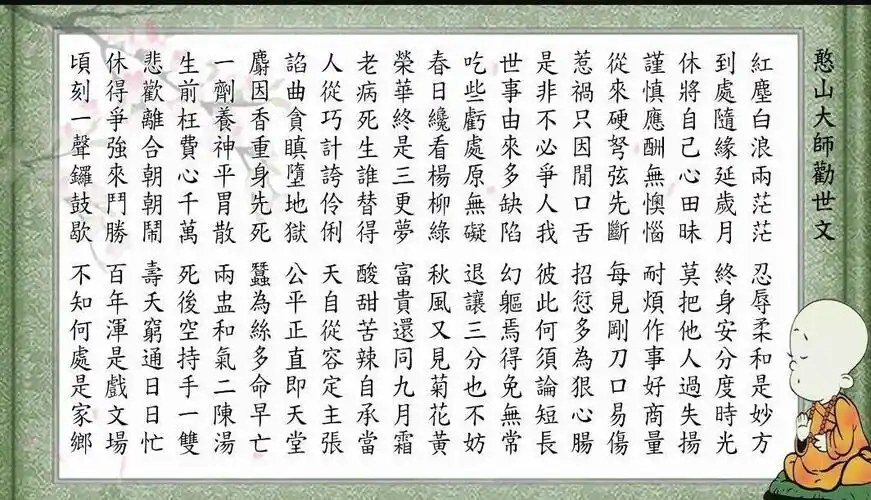 憨山大師勸世文
紅塵白浪兩茫茫
忍辱柔和是妙方
到處隨緣延歲月
終身安分度時光
休將自己心田昧
莫把他人過失揚
謹慎應酬無懊惱
耐煩作事好商量
從來硬弩弦先斷
每見剛刀口易傷
惹禍只因閒口舌
招愆多為狠心腸
是非不必爭人我
彼此何須論短長
世事由來多缺陷
幻軀焉得免無常
吃些虧處原無礙
退讓三分也不妨
春日纔看楊柳綠
秋風又見菊花黃
榮華終是三更夢
富貴還同九月霜
老病死生誰替得
酸甜苦辣自承當
人從巧計誇伶俐
天自從容定主張
諂曲貪瞋墮地獄
公平正直即天堂
麝因香重身先死
蠶為絲多命早亡
一劑養神平胃散
兩盅和氣二陳湯
生前枉費心千萬
死後空持手一雙
悲歡離合朝朝鬧
壽夭窮通日日忙
休得爭強來鬥勝
百年渾是戲文場
頃刻一聲鑼鼓歇
不知何處是家鄉